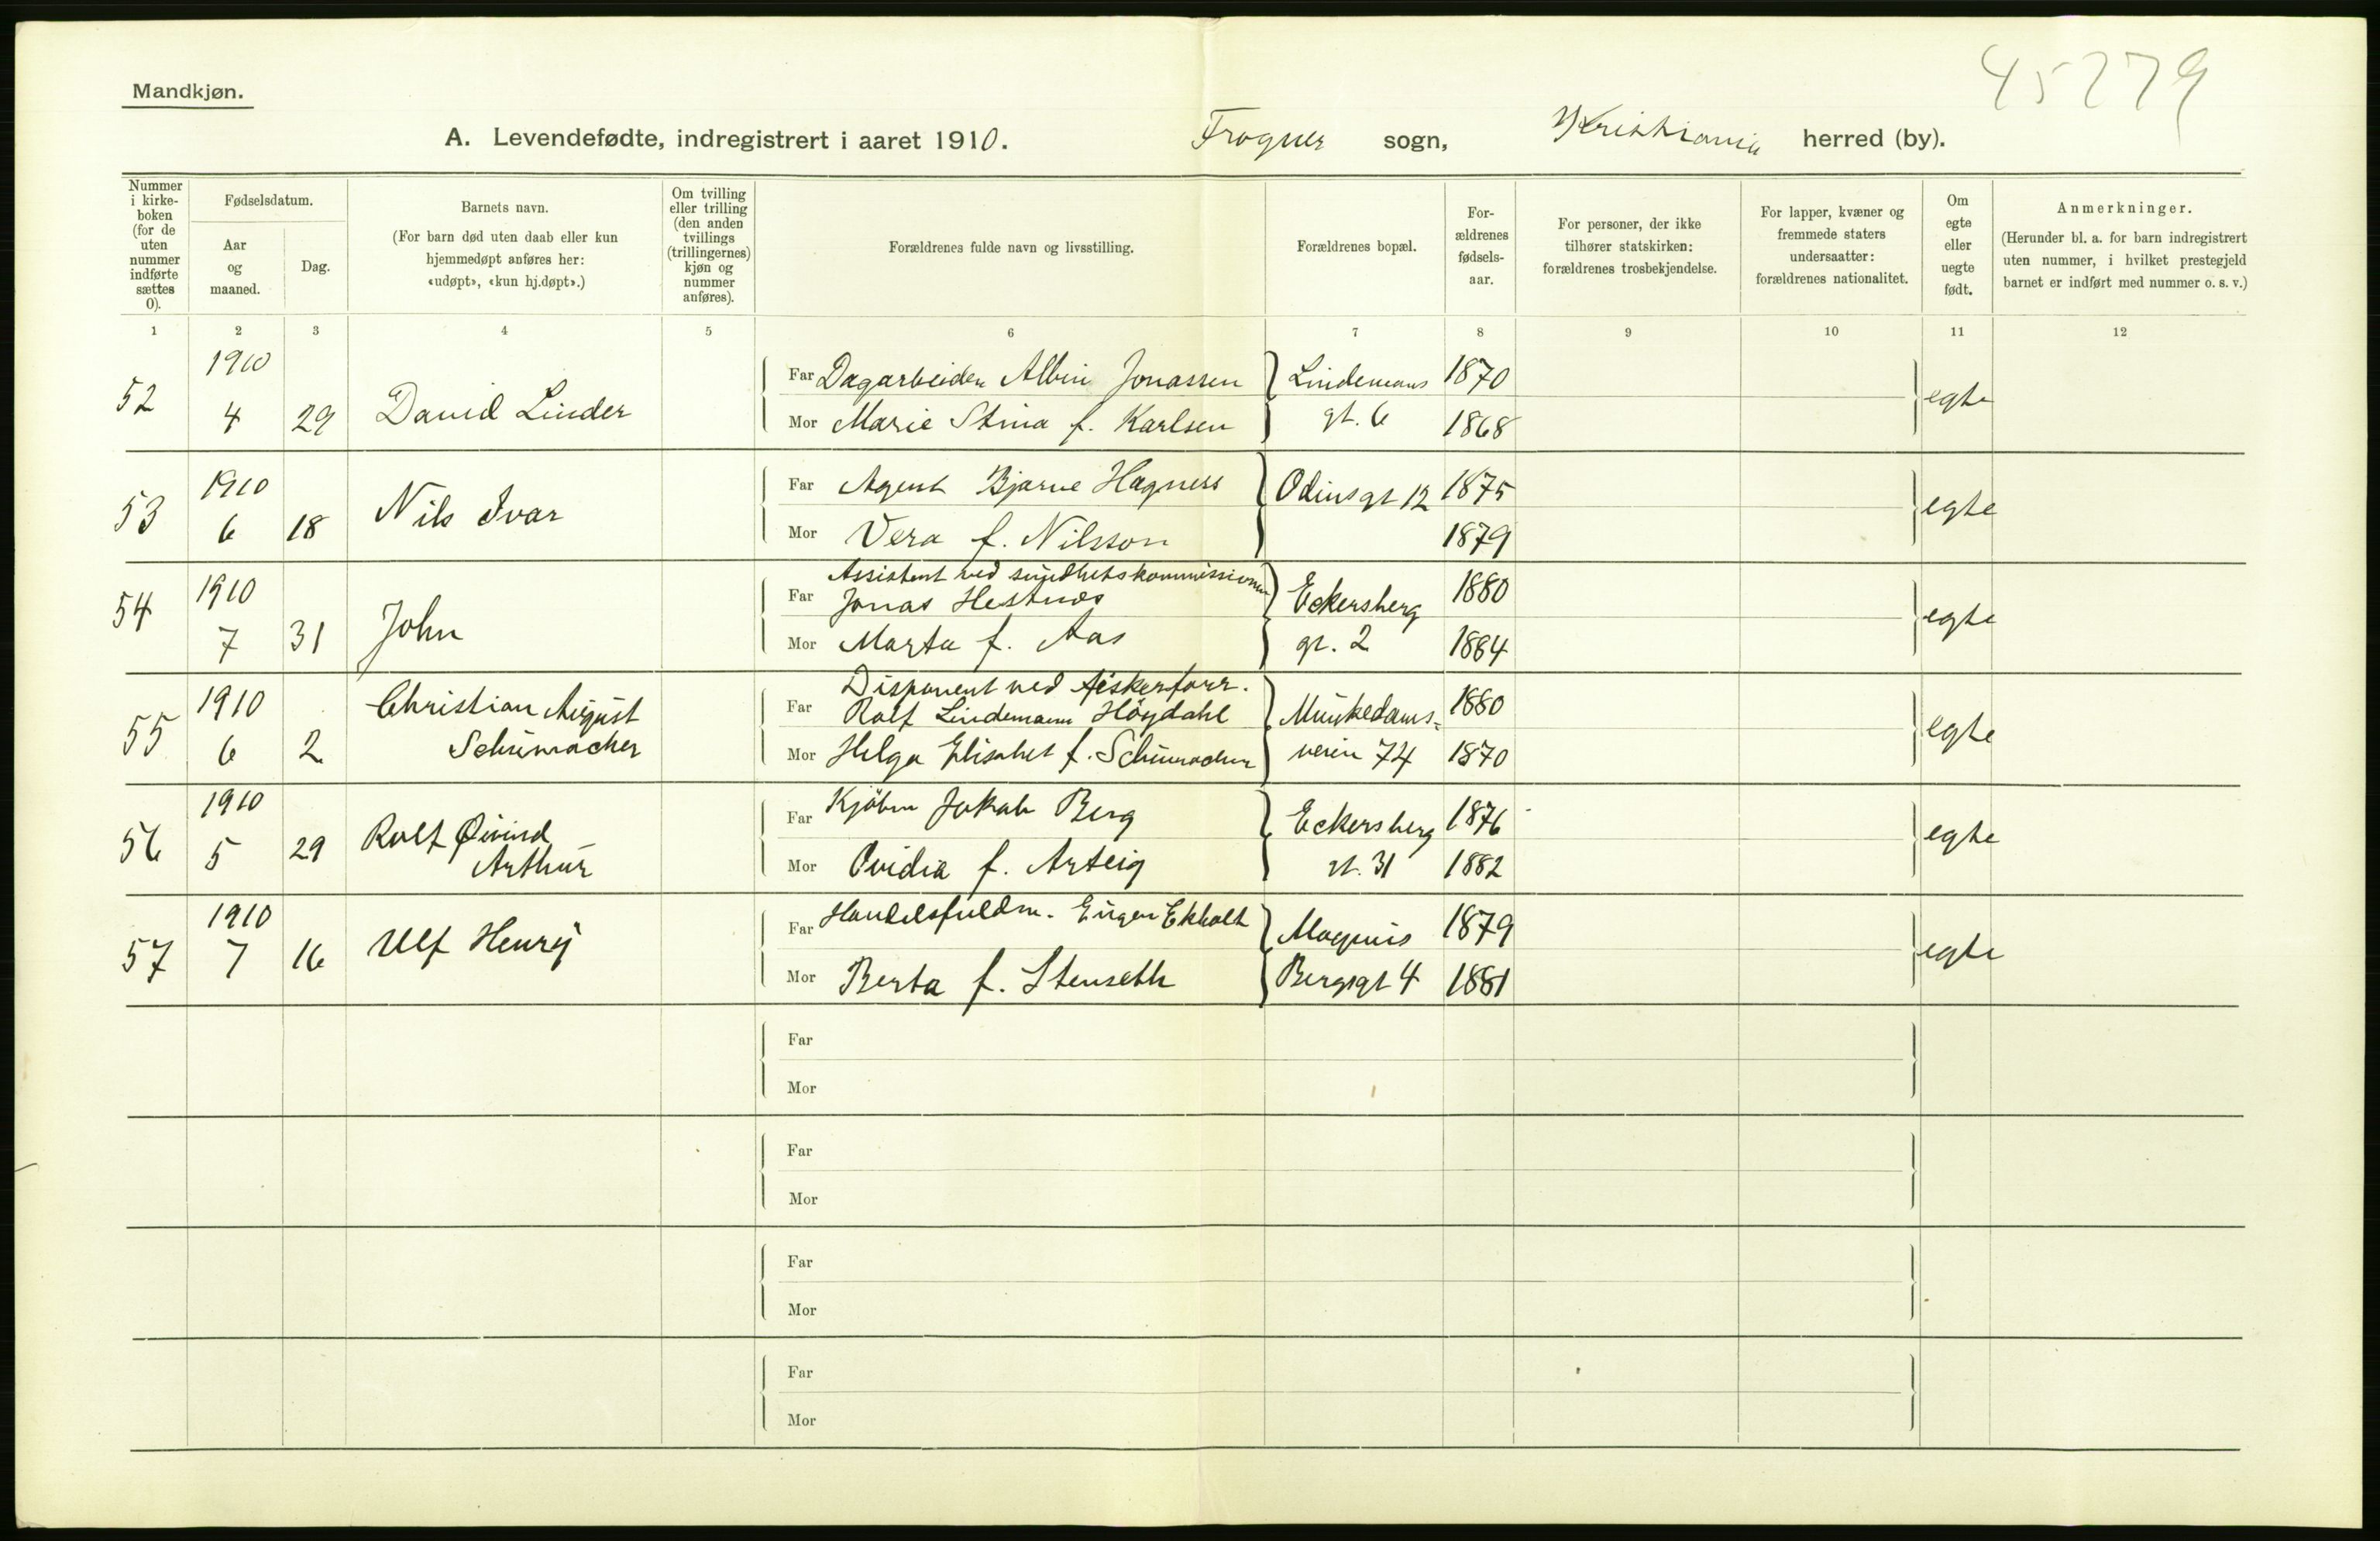 45279
Mandkjøn.
A. Levendefødte, indregistrert i aaret 1910. Frogner sogn, Kristiania herred (by).
Nummer i kirkeboken (for de uten nummer indførte sættes 0).
Fødselsdatum.
Aar og maaned.
Dag.
Barnets navn.
(For barn død uten daab eller kun hjemmedøpt anføres her: «udøpt», «kun hj.døpt».)
Om tvilling eller trilling (den anden tvillings (trillingernes) kjøn og nummer anføres).
Forældrenes fulde navn og livsstilling.
Forældrenes bopæl.
For-ældrenes fødsels-aar.
For personer, der ikke tilhører statskirken: forældrenes trosbekjendelse.
For lapper, kvæner og fremmede staters undersaatter: forældrenes nationalitet.
Om egte eller uegte født.
Anmerkninger.
(Herunder bl. a. for barn indregistrert uten nummer, i hvilket prestegjeld barnet er indført med nummer o. s. v.)
1 2 3 4 5 6 7 8 9 10 11 12
52 1910 4 29 David Linder
Far Dagarbeider Albin Jonassen Lindemans 1870
Mor Marie Stina f. Karlsen gt. 6 1868 egte
53 1910 6 18 Nils Ivar
Far Agent Bjarne Hagness Odinsgt 12 1875
Mor Vera f. Nilsson 1879 egte
54 1910 7 31 John
Assistent ved sundhetskommissionen
Far Jonas Hestnes Eckersberg 1880
Mor Marta f. Aas gt. 2 1884 egte
55 1910 6 2 Christian August
Schumacher
Disponent ved
Far Rolf Lindemann Höydahl Munkedams- 1880
Mor Helga Elisabet f. Schumacher veien 74 1870 egte
56 1910 5 29 Rolf Øivind
Arthur
Far Kjöbm Jakob Berg Eckersberg 1876
Mor Ovidia f. Arteig gt. 31 1882 egte
57 1910 7 16 Ulf Henry
Far Handelsfuldm. Eugen Ekholt Magnus 1879
Mor Berta f. Stenseth Bergsgt 4 1881 egte
Far
Mor
Far
Mor
Far
Mor
Far
Mor